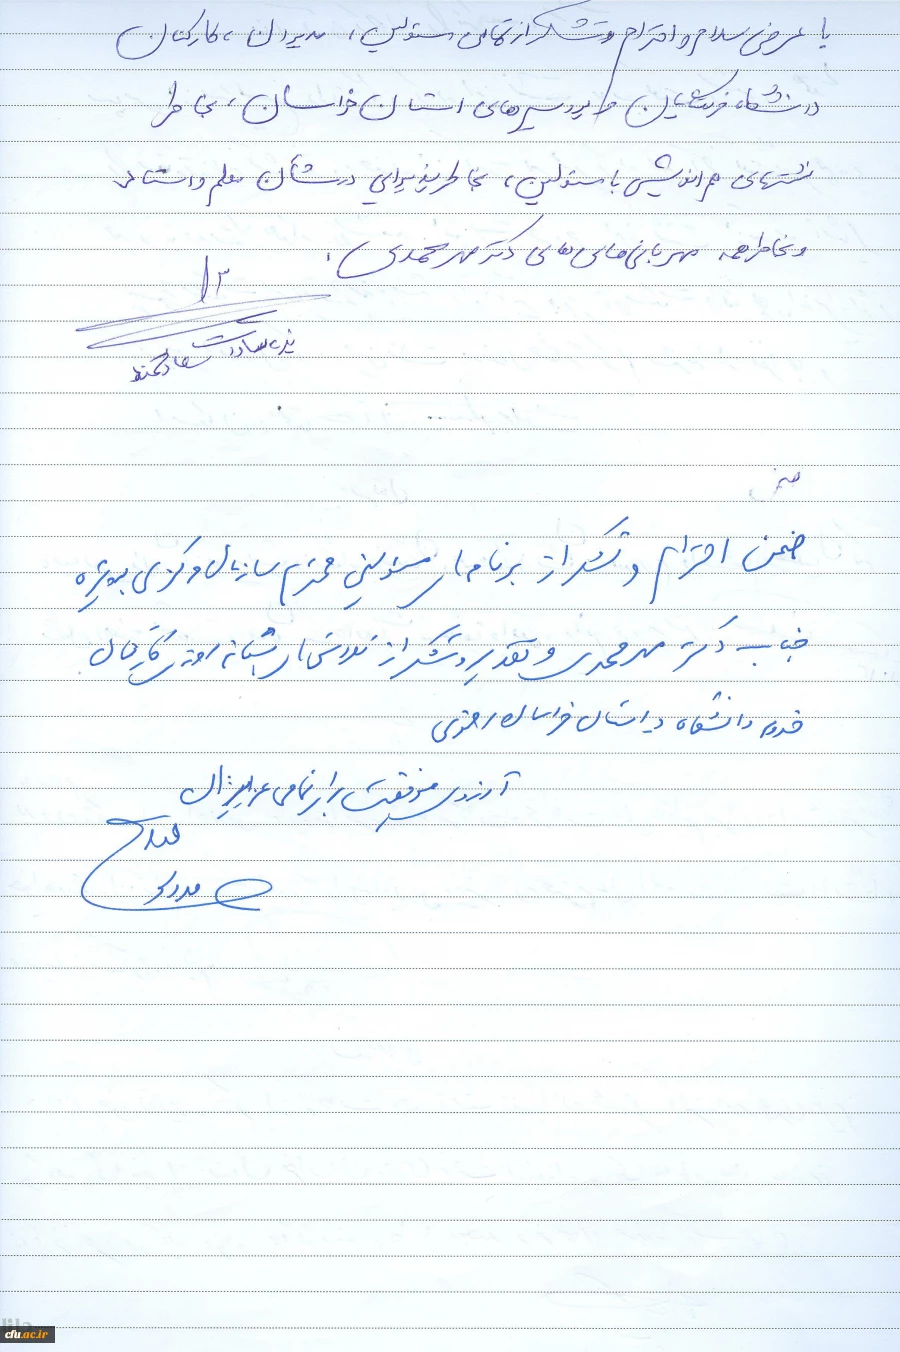 با عرض سلام و احترام و تشکر از تمامی مسئولین، مدیران، کارکنان
دانشگاه فرهنگیان و پردیس‌های استان خراسان، بخاطر
نشستهای هم‌اندیشی با مسئولین، بخاطر پذیرایی درشأن معلم و استاد
و بخاطر همه مهربانی‌های دکتر مهرمحمدی.
ضمن
ضمن احترام و تشکر از برنامه‌های مسئولین محترم سازمان مرکزی بویژه
جناب دکتر مهرمحمدی و تقدیر و تشکر از تلاش شبانه روزی کارکنان
خدوم دانشگاه در استان خراسان رضوی
آرزوی موفقیت برای تمامی عزیزان
cfu.ac.ir